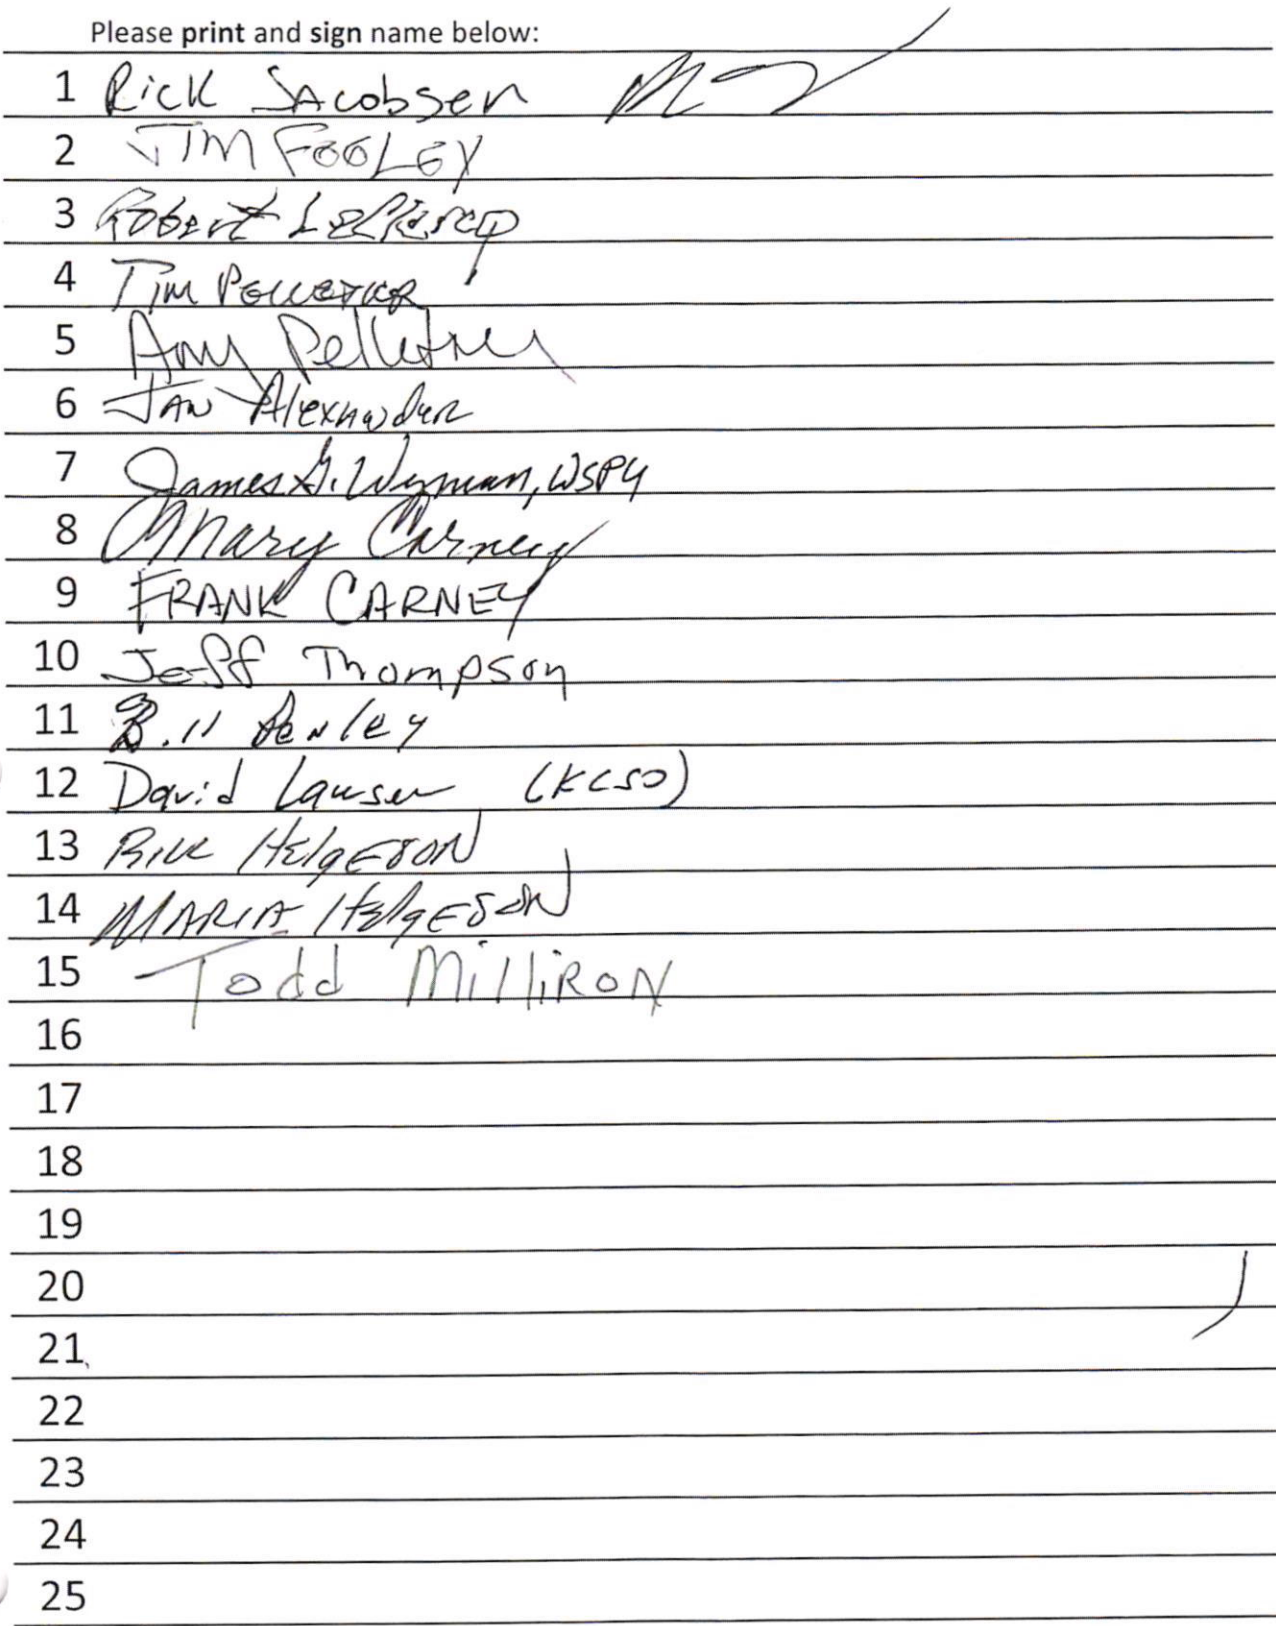 Please print and sign name below:
1 Rick Jacobsen
2 JIM FOOLEY
3 Robert
4 Tim Pelletier
5 Amy Pelletier
6 Jan Alexander
7 James G. Wyman, WSPY
8 Mary Carney
9 FRANK CARNEY
10 Jeff Thompson
11 Bill
12 David Lawson (KCSO)
13 Helgeson
14 MARIA Helgeson
15 Todd MilliRON
16
17
18
19
20
21
22
23
24
25